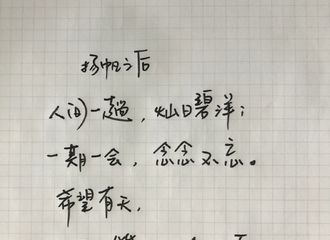 扬帆之后
人间一趟，灿日碧洋；
一期一会，念念不忘。
希望有天，